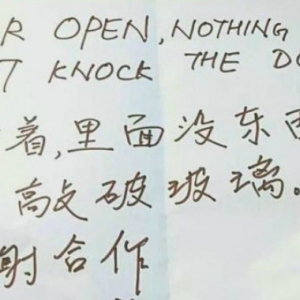 R OPEN, NOTHING
T KNOCK THE DO
着,里面没东西
敲破玻璃。
谢合作